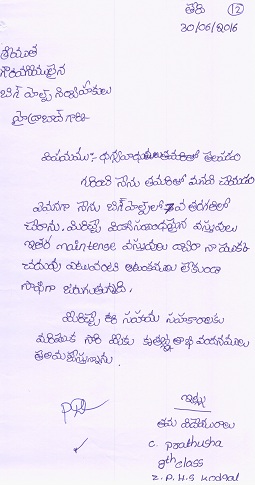 తేది (12)
30/06/2016
శ్రీయుత
గౌరవనీయులైన
బిగ్ హెల్ప్ నిర్వాహకులు
హైద్రాబాద్ గారికి
విషయము:- ధన్యవాదములు తమరితో తెలపడం
గురించి నేను తమరితో మనవి చేయడం
ఏమనగా నేను బిగ్ హెల్ప్ లో 7వ తరగతిలో
చేరాను. మీరిచ్చే విద్యాసంబంధమైన వస్తువులు
ఇతర maintenance వస్తువుల ద్వారా నా యొక్క
చదువు ఎటువంటి ఆటంకములు లేకుండా
సాఫీగా జరుగుతున్నది.
మీరిచ్చే ఈ సహాయ సహకారాలకు
మరియొక సారి మీకు కృతజ్ఞతాభి వందనములు
తెలియజేస్తున్నాను.
ఇట్లు
తమ విధేయురాలు
C. Prathusha
8th class
Z.P.H.S Kodgal